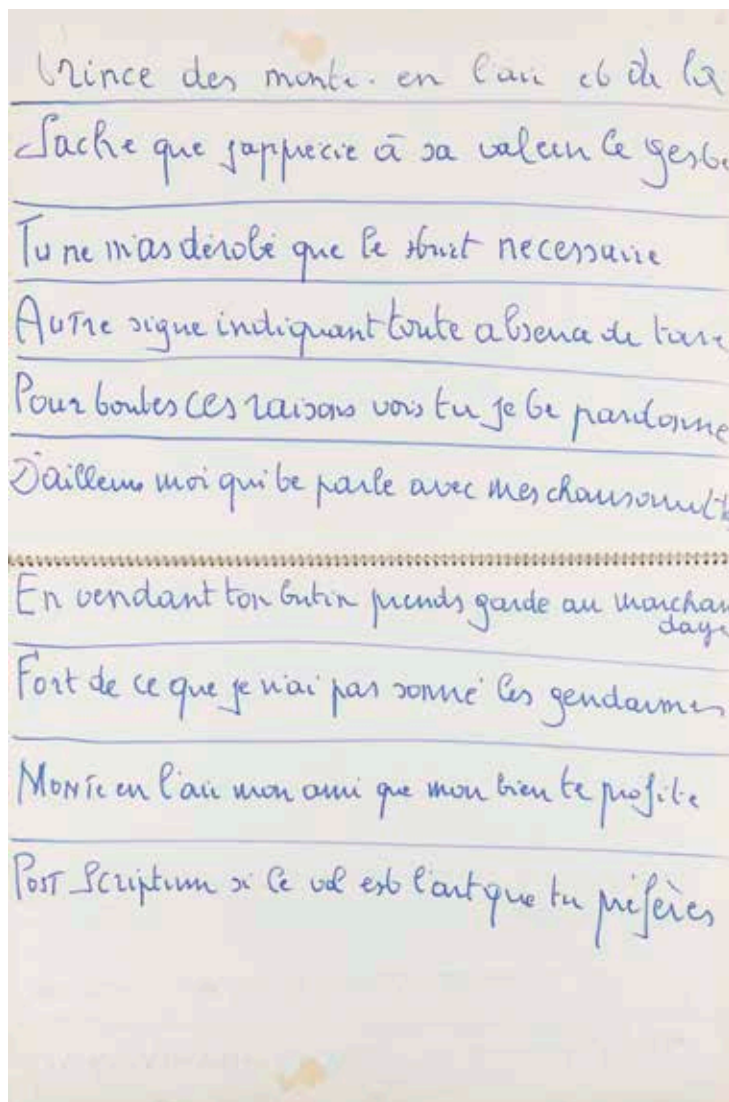 Prince des monte. en l'air et de la
Sache que j'apprécie à sa valeur le geste
Tu ne m'as dérobé que le strict necessaire
Autre signe indiquant toute absence de tare
Pour toutes ces raisons vois tu je te pardonne
D'ailleurs moi qui te parle avec mes chansonnettes
En vendant ton butin prends garde au marchan
dage
Fort de ce que je n'ai pas sonné les gendarmes
Monte en l'air mon ami que mon bien te profite
Post Scriptum si le vol est l'art que tu préfères